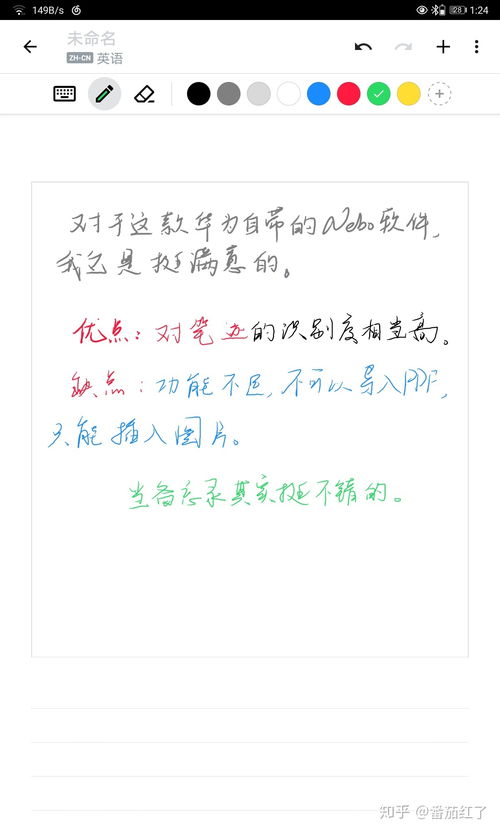 149B/s 28 1:24
未命名
ZH-CN 英语
对于这款华为自带的Nebo软件,
我还是挺满意的。
优点:对笔迹的识别度相当高。
缺点:功能不足,不可以导入PDF,
只能插入图片。
当备忘录其实挺不错的。
知乎 @番茄红了